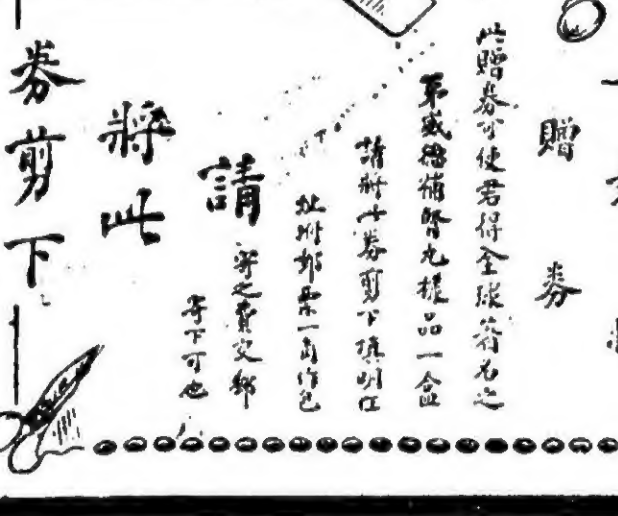 贈券
此贈券可使君得全球著名之
第威德補腎丸樣品一盒
請將此券剪下填明住
址附郵票一角作包
寄之費交郵
寄下可也
請
將此
券剪下